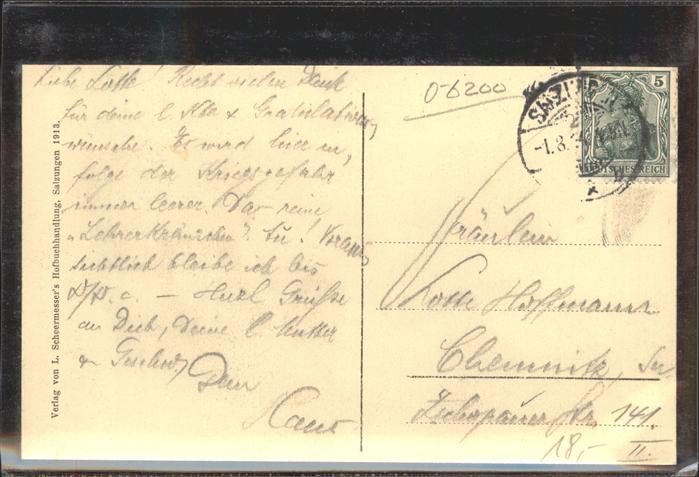 Liebe Lotte! Recht vielen Dank
für deine l. Kte & Gratulations
wünsche. Es wird hier in,
folge der Kriegsgefahr
immer leerer. Das reine
„Lehrerkränzchen“. Voraus
sichtlich bleibe ich bis
Herzl. Grüsse
an Dich, Deine l. Mutter
& Geschw.
Dein
Hans
Verlag von L. Scheermesser's Hofbuchhandlung, Salzungen 1913.
0-6200
5
DEUTSCHES REICH
SALZUNGEN
-1.8.
Fräulein
Lotte Hoffmann
Chemnitz,
Zschopauer Str. 141.
II.
18,-